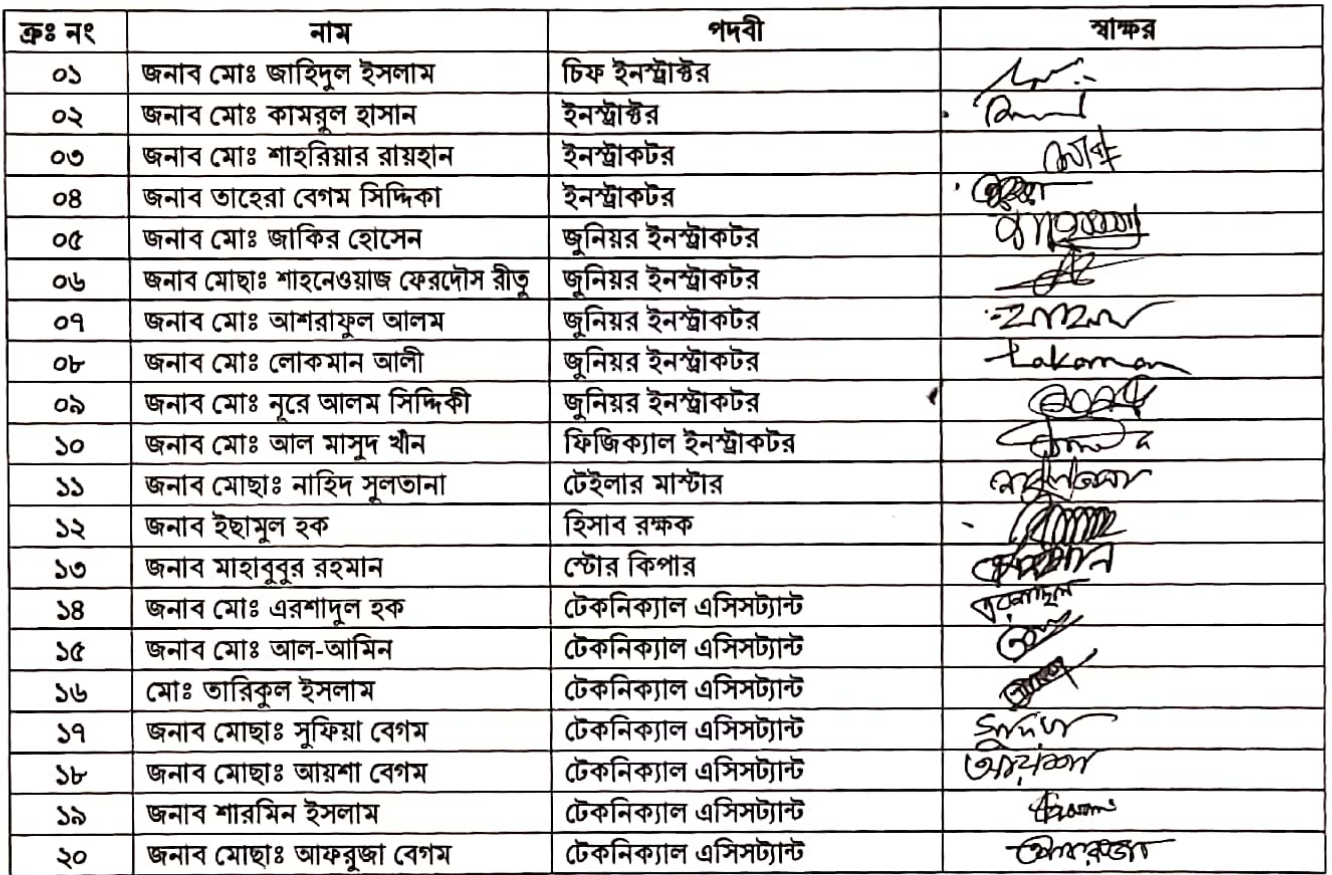 ক্রঃ নং নাম পদবী স্বাক্ষর
০১ জনাব মোঃ জাহিদুল ইসলাম চিফ ইনস্ট্রাক্টর
০২ জনাব মোঃ কামরুল হাসান ইনস্ট্রাক্টর
০৩ জনাব মোঃ শাহরিয়ার রায়হান ইনস্ট্রাকটর
০৪ জনাব তাহেরা বেগম সিদ্দিকা ইনস্ট্রাকটর
০৫ জনাব মোঃ জাকির হোসেন জুনিয়র ইনস্ট্রাকটর
০৬ জনাব মোছাঃ শাহনেওয়াজ ফেরদৌস রীতু জুনিয়র ইনস্ট্রাকটর
০৭ জনাব মোঃ আশরাফুল আলম জুনিয়র ইনস্ট্রাকটর
০৮ জনাব মোঃ লোকমান আলী জুনিয়র ইনস্ট্রাকটর Lokaman
০৯ জনাব মোঃ নূরে আলম সিদ্দিকী জুনিয়র ইনস্ট্রাকটর
১০ জনাব মোঃ আল মাসুদ খাঁন ফিজিক্যাল ইনস্ট্রাকটর
১১ জনাব মোছাঃ নাহিদ সুলতানা টেইলার মাস্টার
১২ জনাব ইছামুল হক হিসাব রক্ষক
১৩ জনাব মাহাবুবুর রহমান স্টোর কিপার
১৪ জনাব মোঃ এরশাদুল হক টেকনিক্যাল এসিসট্যান্ট এরশাদুল
১৫ জনাব মোঃ আল-আমিন টেকনিক্যাল এসিসট্যান্ট
১৬ মোঃ তারিকুল ইসলাম টেকনিক্যাল এসিসট্যান্ট
১৭ জনাব মোছাঃ সুফিয়া বেগম টেকনিক্যাল এসিসট্যান্ট
১৮ জনাব মোছাঃ আয়শা বেগম টেকনিক্যাল এসিসট্যান্ট আয়শা
১৯ জনাব শারমিন ইসলাম টেকনিক্যাল এসিসট্যান্ট
২০ জনাব মোছাঃ আফরুজা বেগম টেকনিক্যাল এসিসট্যান্ট আফরুজা